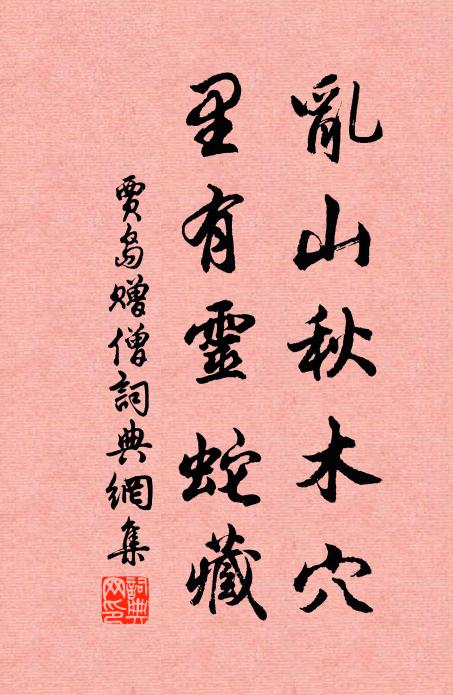 亂山秋木穴
里有靈蛇藏
賈島贈僧詞典網集
詞典网印